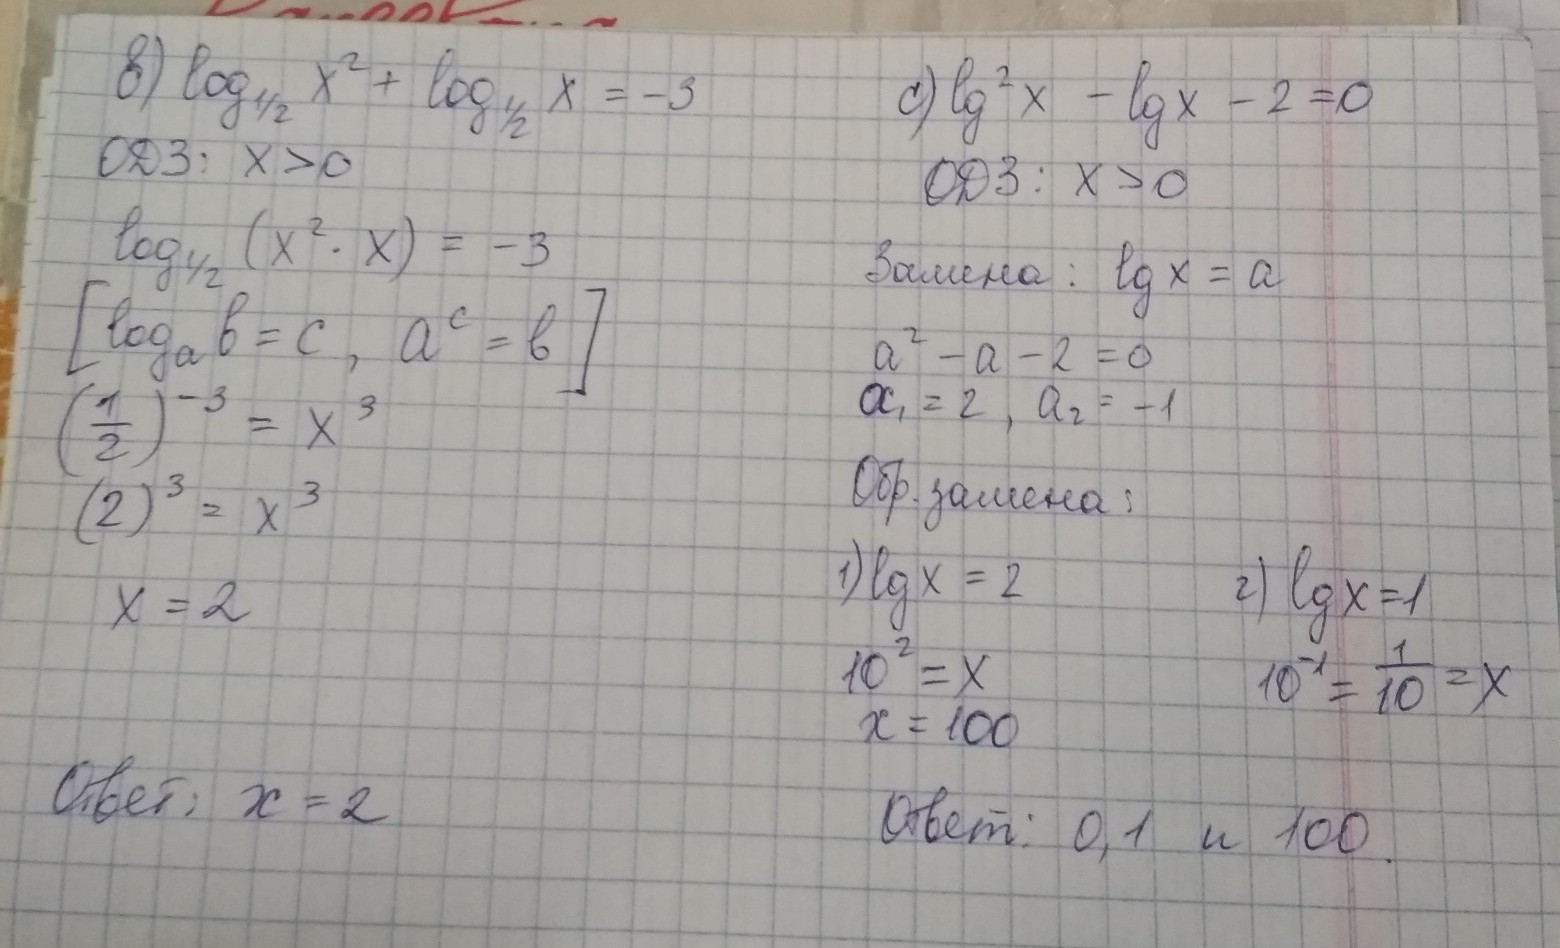 в) log₁/₂ x² + log₁/₂ x = -3
ОДЗ: x>0
log₁/₂ (x² · x) = -3
[logₐ b = c, aᶜ = b]
(1/2)⁻³ = x³
(2)³ = x³
x = 2
Ответ: x = 2
c) lg²x - lgx - 2 = 0
ОДЗ: x>0
Замена: lg x = a
a² - a - 2 = 0
a₁ = 2, a₂ = -1
Обр. замена:
1) lg x = 2
10² = x
x = 100
2) lg x = 1
10⁻¹ = 1/10 = x
Ответ: 0,1 и 100.